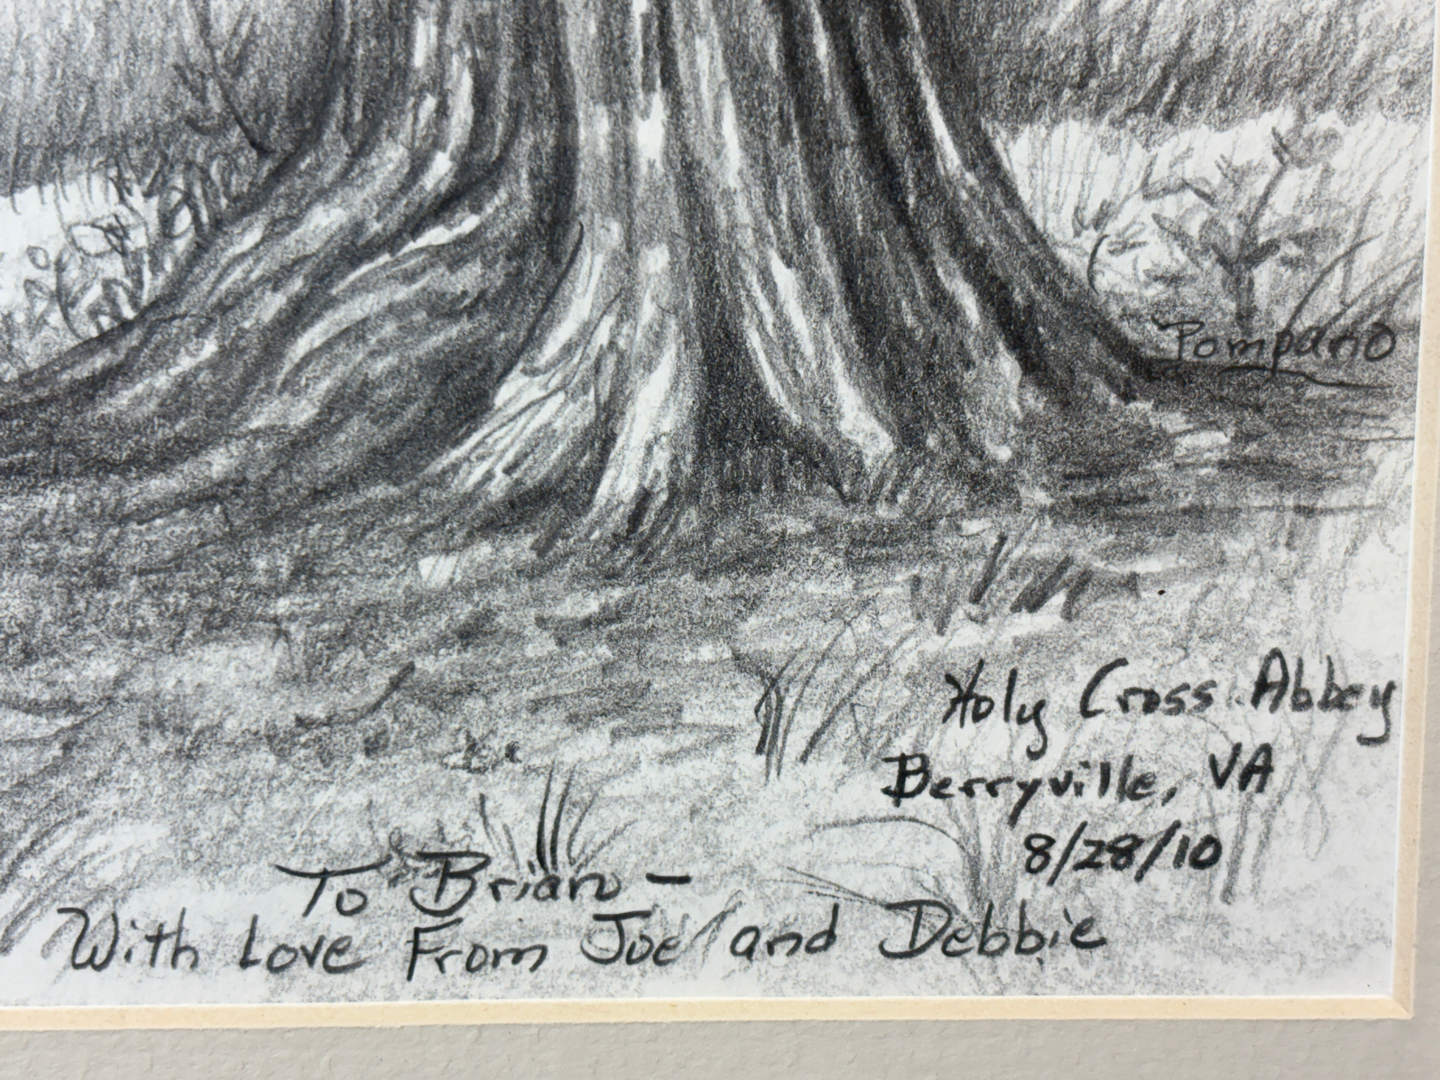 Pompano
Holy Cross Abbey
Berryville, VA
8/28/10
To Brian –
With Love From Joe and Debbie